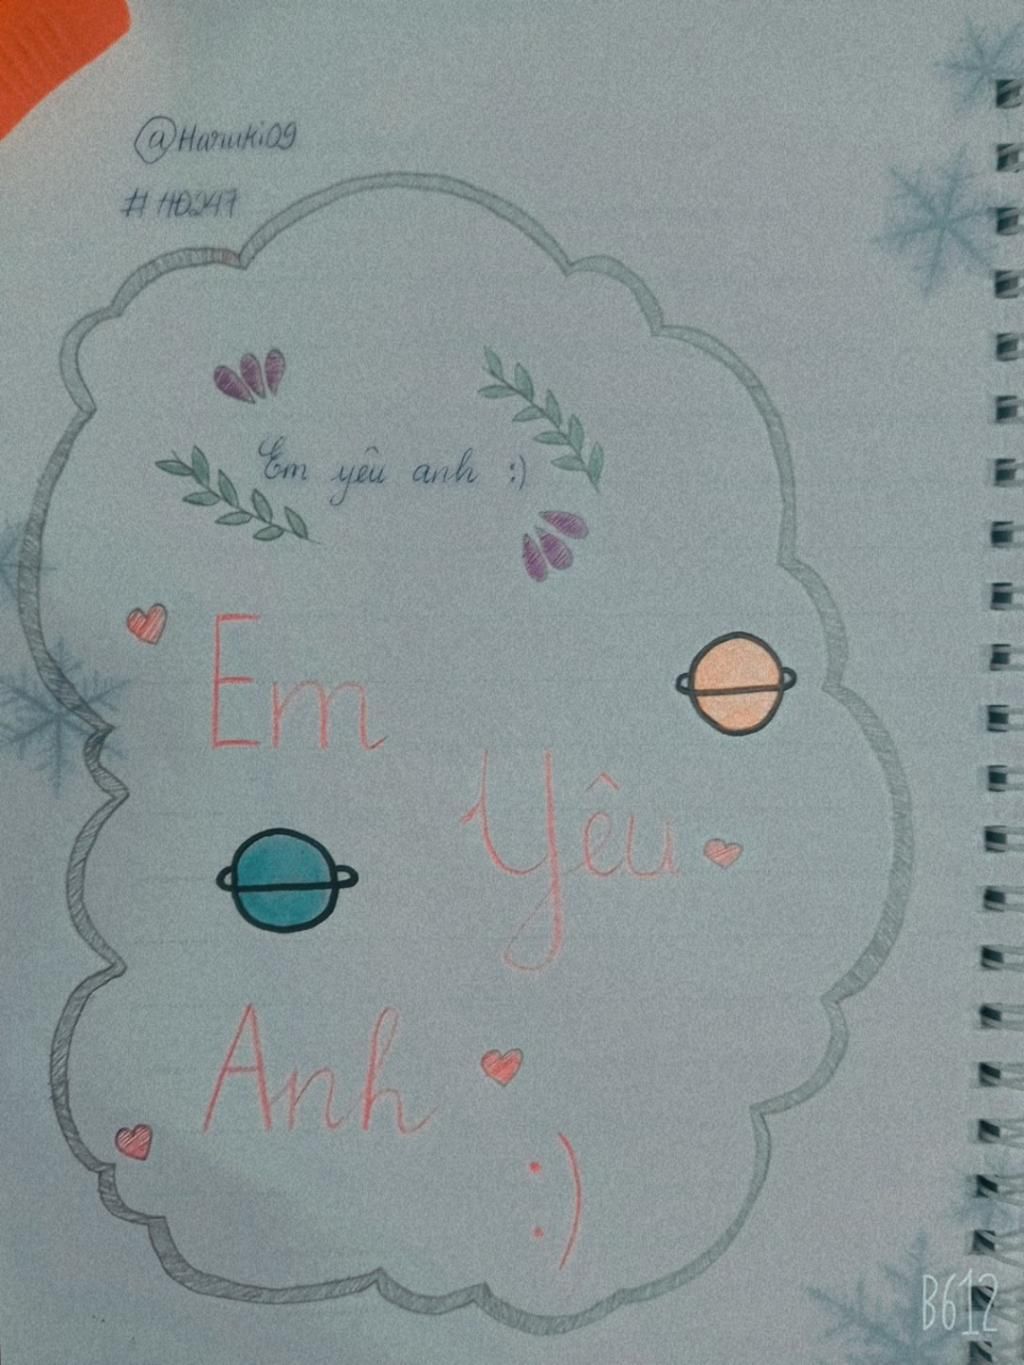 @Haruki09
#HD247
Em yêu anh :)
Em
Yêu
Anh
:)
B612